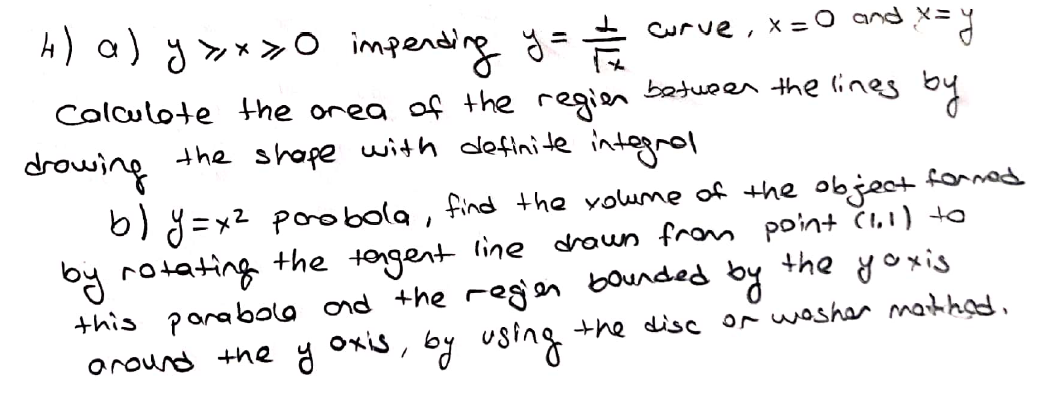 4) a) y ⩾ x ⩾ 0 impending y = 1/√x curve, x = 0 and x = y
Calculate the area of the region between the lines by
drawing the shape with definite integral
b) y = x² parabola, find the volume of the object formed
by rotating the tangent line drawn from point (1,1) to
this parabola and the region bounded by the y axis
around the y axis, by using the disc or washer mathhod.